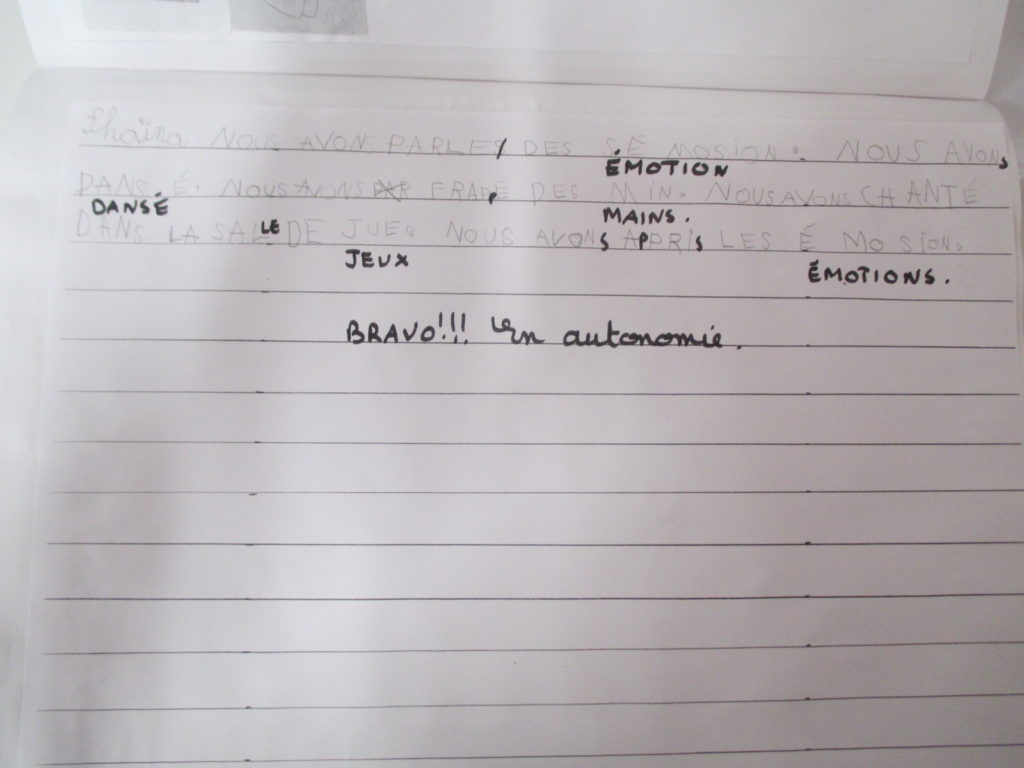 Shaïna NOUS AVON PARLEY DES SÉ MOSION. NOUS AVONS
ÉMOTION
DANS É. NOUS AVONS FRAPÉ DES MIN. NOUS AVONS CHANTÉ
DANSÉ MAINS.
DANS LA SALLE DE JUE. NOUS AVONS APPRIS LES É MOSION.
JEUX ÉMOTIONS.
BRAVO!!! En autonomie.